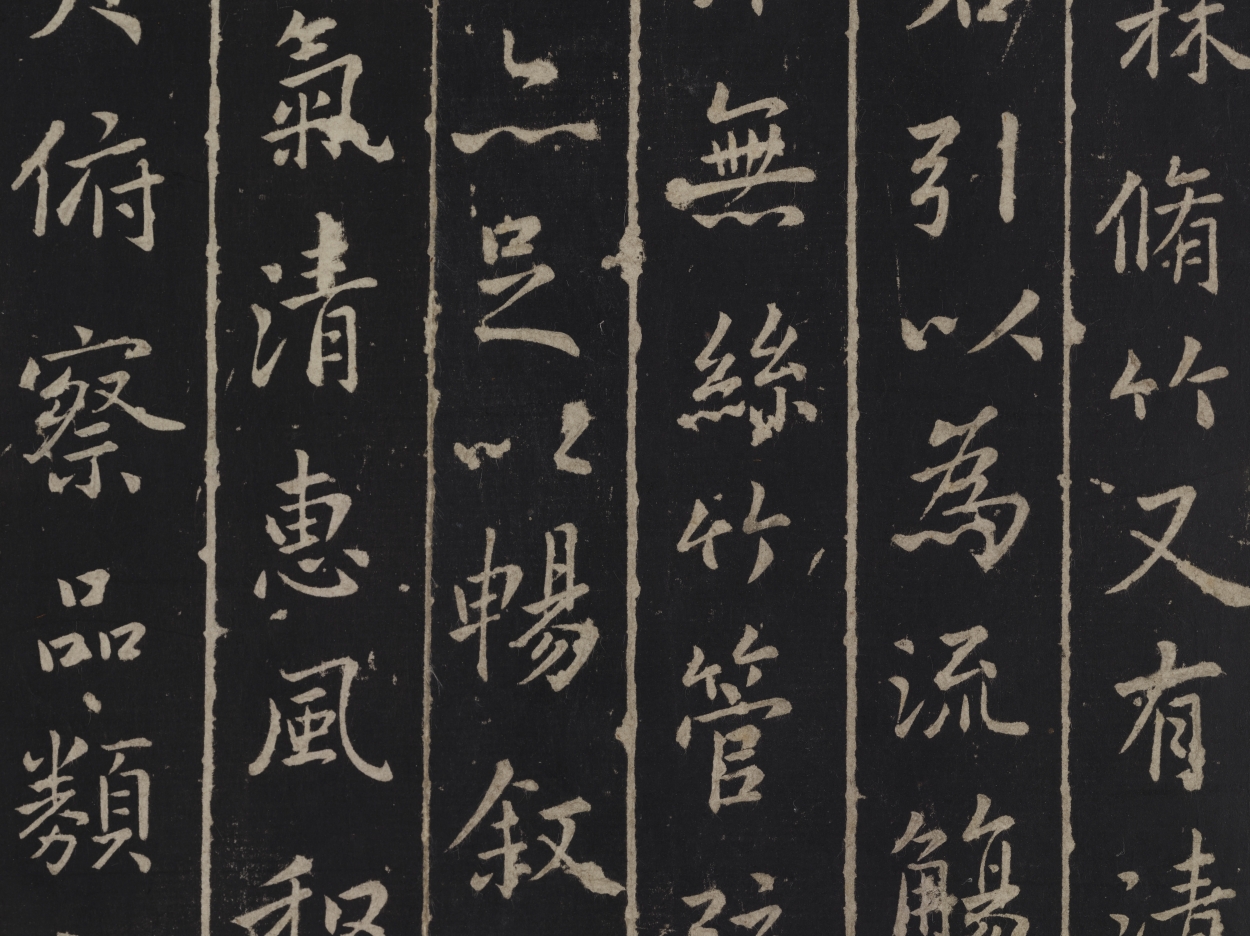 林脩竹又有清
引以為流觴
無絲竹管弦
亦足以暢敘
氣清惠風和
俯察品類